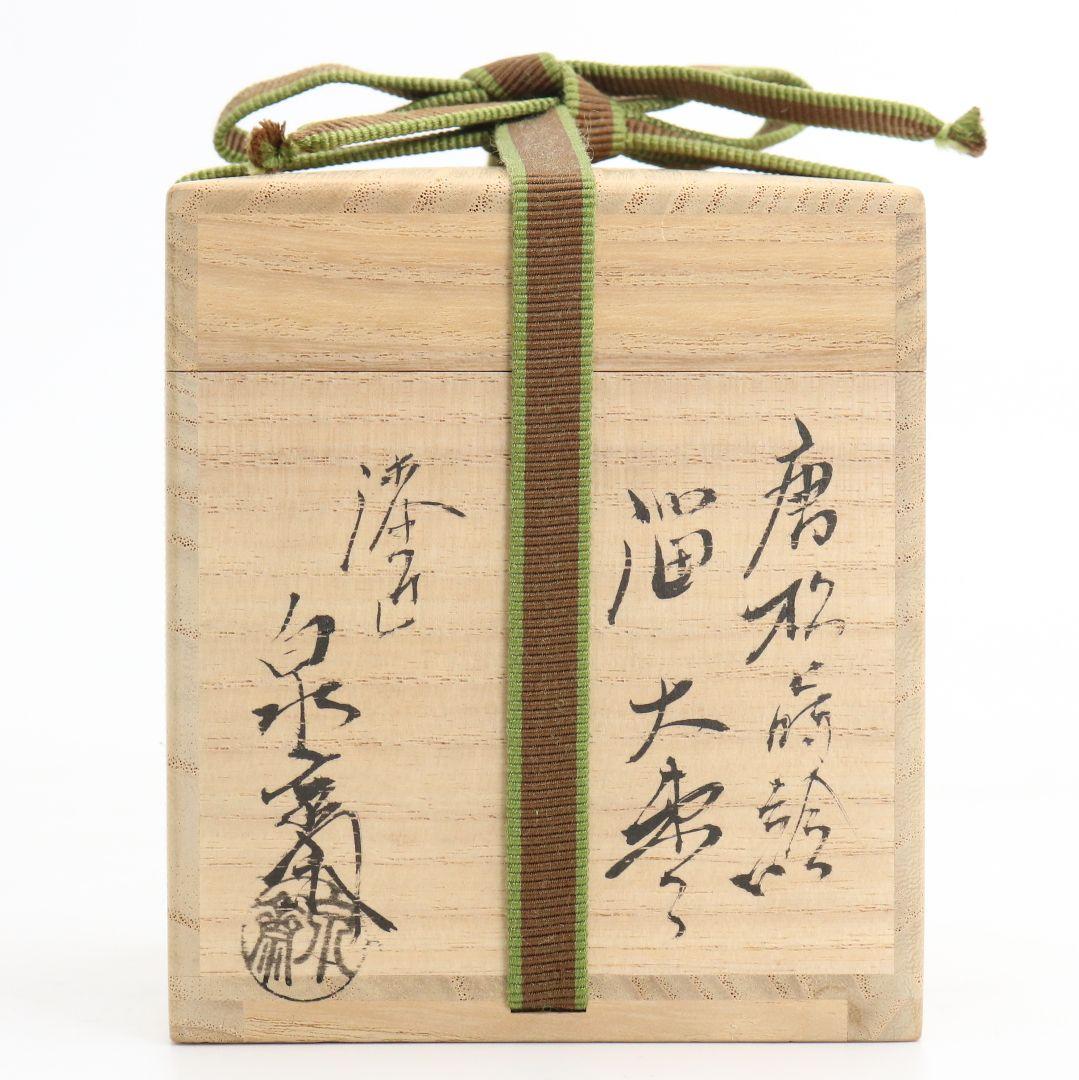 唐松蒔絵
溜 大棗
漆匠
泉斎